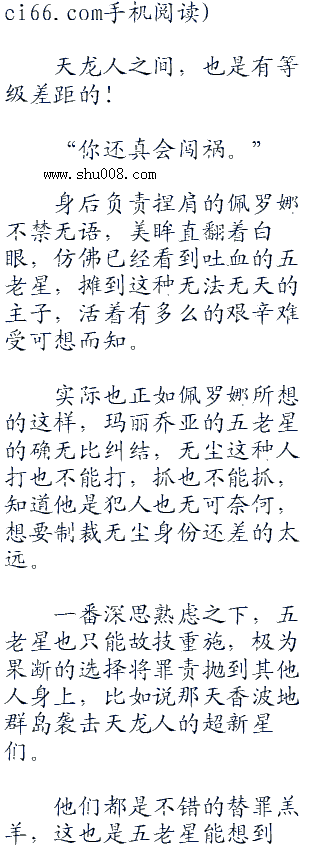 ci66.com手机阅读）
天龙人之间，也是有等
级差距的！
“你还真会闯祸。”
www.shu008.com
身后负责捏肩的佩罗娜
不禁无语，美眸直翻着白
眼，仿佛已经看到吐血的五
老星，摊到这种无法无天的
主子，活着有多么的艰辛难
受可想而知。
实际也正如佩罗娜所想
的这样，玛丽乔亚的五老星
的确无比纠结，无尘这种人
打也不能打，抓也不能抓，
知道他是犯人也无可奈何，
想要制裁无尘身份还差的太
远。
一番深思熟虑之下，五
老星也只能故技重施，极为
果断的选择将罪责抛到其他
人身上，比如说那天香波地
群岛袭击天龙人的超新星
们。
他们都是不错的替罪羔
羊，这也是五老星能想到